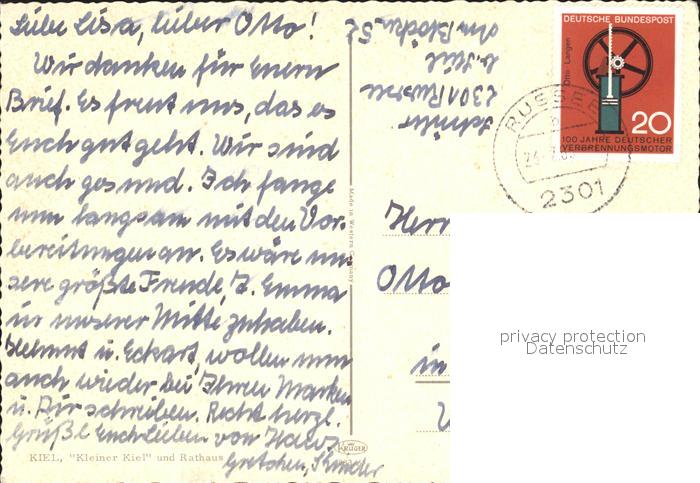 Liebe Lisa, lieber Otto!
Wir danken für Euern
Brief. Es freut uns, das es
Euch gut geht. Wir sind
auch gesund. Ich fange
nun langsam mit den Vor-
bereitungen an. Es wäre un-
sere größte Freude, T. Emma
in unserer Mitte zu haben.
Helmut u. Eckart, wollen nun
auch wieder bei Ihnen Marken
u. Dir schreiben. Recht herzl.
Grüße Euch Lieben von Hans
Gretchen, Kinder
KIEL, "Kleiner Kiel" und Rathaus
KRÜGER
Made in Western Germany
2301 Russee
b. Kiel
DEUTSCHE BUNDESPOST
Otto Langen
20
100 JAHRE DEUTSCHER
VERBRENNUNGSMOTOR
RUSSEE
2301
Herr
Otto
in
privacy protection
Datenschutz